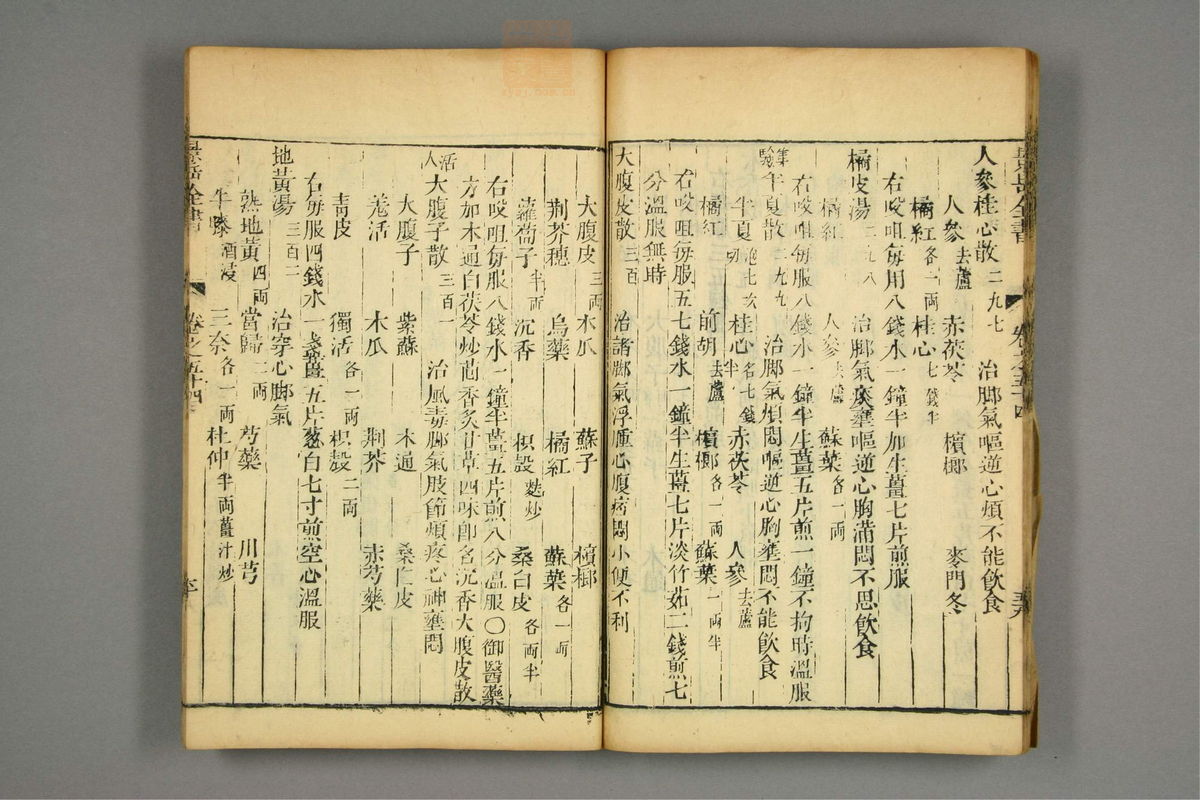 景岳全書 卷之五十四
人參桂心散 二九七 治脚氣嘔逆心煩不能飲食
人參 去蘆 赤茯苓 檳榔 麥門冬
橘紅 各一兩 桂心 七錢半
右㕮咀每用八錢水一鍾半加生薑七片煎服
橘皮湯 二九八 治脚氣痰壅嘔逆心胸滿悶不思飲食
橘紅 人參 去蘆 蘇葉 各一兩
右㕮咀每服八錢水一鍾半生薑五片煎一鍾不拘時溫服
集驗半夏散 二九九 治脚氣煩悶嘔逆心胸壅悶不能飲食
半夏 泡七次切 桂心 各七錢半 赤茯苓 人參 去蘆
橘紅 前胡 去蘆 檳榔 各一兩 蘇葉 一兩半
右㕮咀每服五七錢水一鍾半生薑七片淡竹茹二錢煎七
分溫服無時
大腹皮散 三百 治諸脚氣浮腫心腹痞悶小便不利
大腹皮 三兩 木瓜 蘇子 檳榔
荆芥穗 烏藥 橘紅 蘇葉 各一兩
蘿蔔子 半兩 沉香 枳殼 麩炒 桑白皮 各兩半
右㕮咀每服八錢水一鍾半薑五片煎八分溫服〇御醫藥
方加木通白茯苓炒茴香炙甘草四味卽名沉香大腹皮散
活人大腹子散 三百一 治風毒脚氣肢節煩疼心神壅悶
大腹子 紫蘇 木通 桑白皮
羌活 木瓜 荆芥 赤芍藥
靑皮 獨活 各一兩 枳殼 二兩
右每服四錢水一盞薑五片葱白七寸煎空心溫服
地黃湯 三百二 治穿心脚氣
熟地黃 四兩 當歸 二兩 芍藥 川芎
牛膝 酒浸 三奈 各一兩 杜仲 半兩薑汁炒
景岳全書 卷之五十四